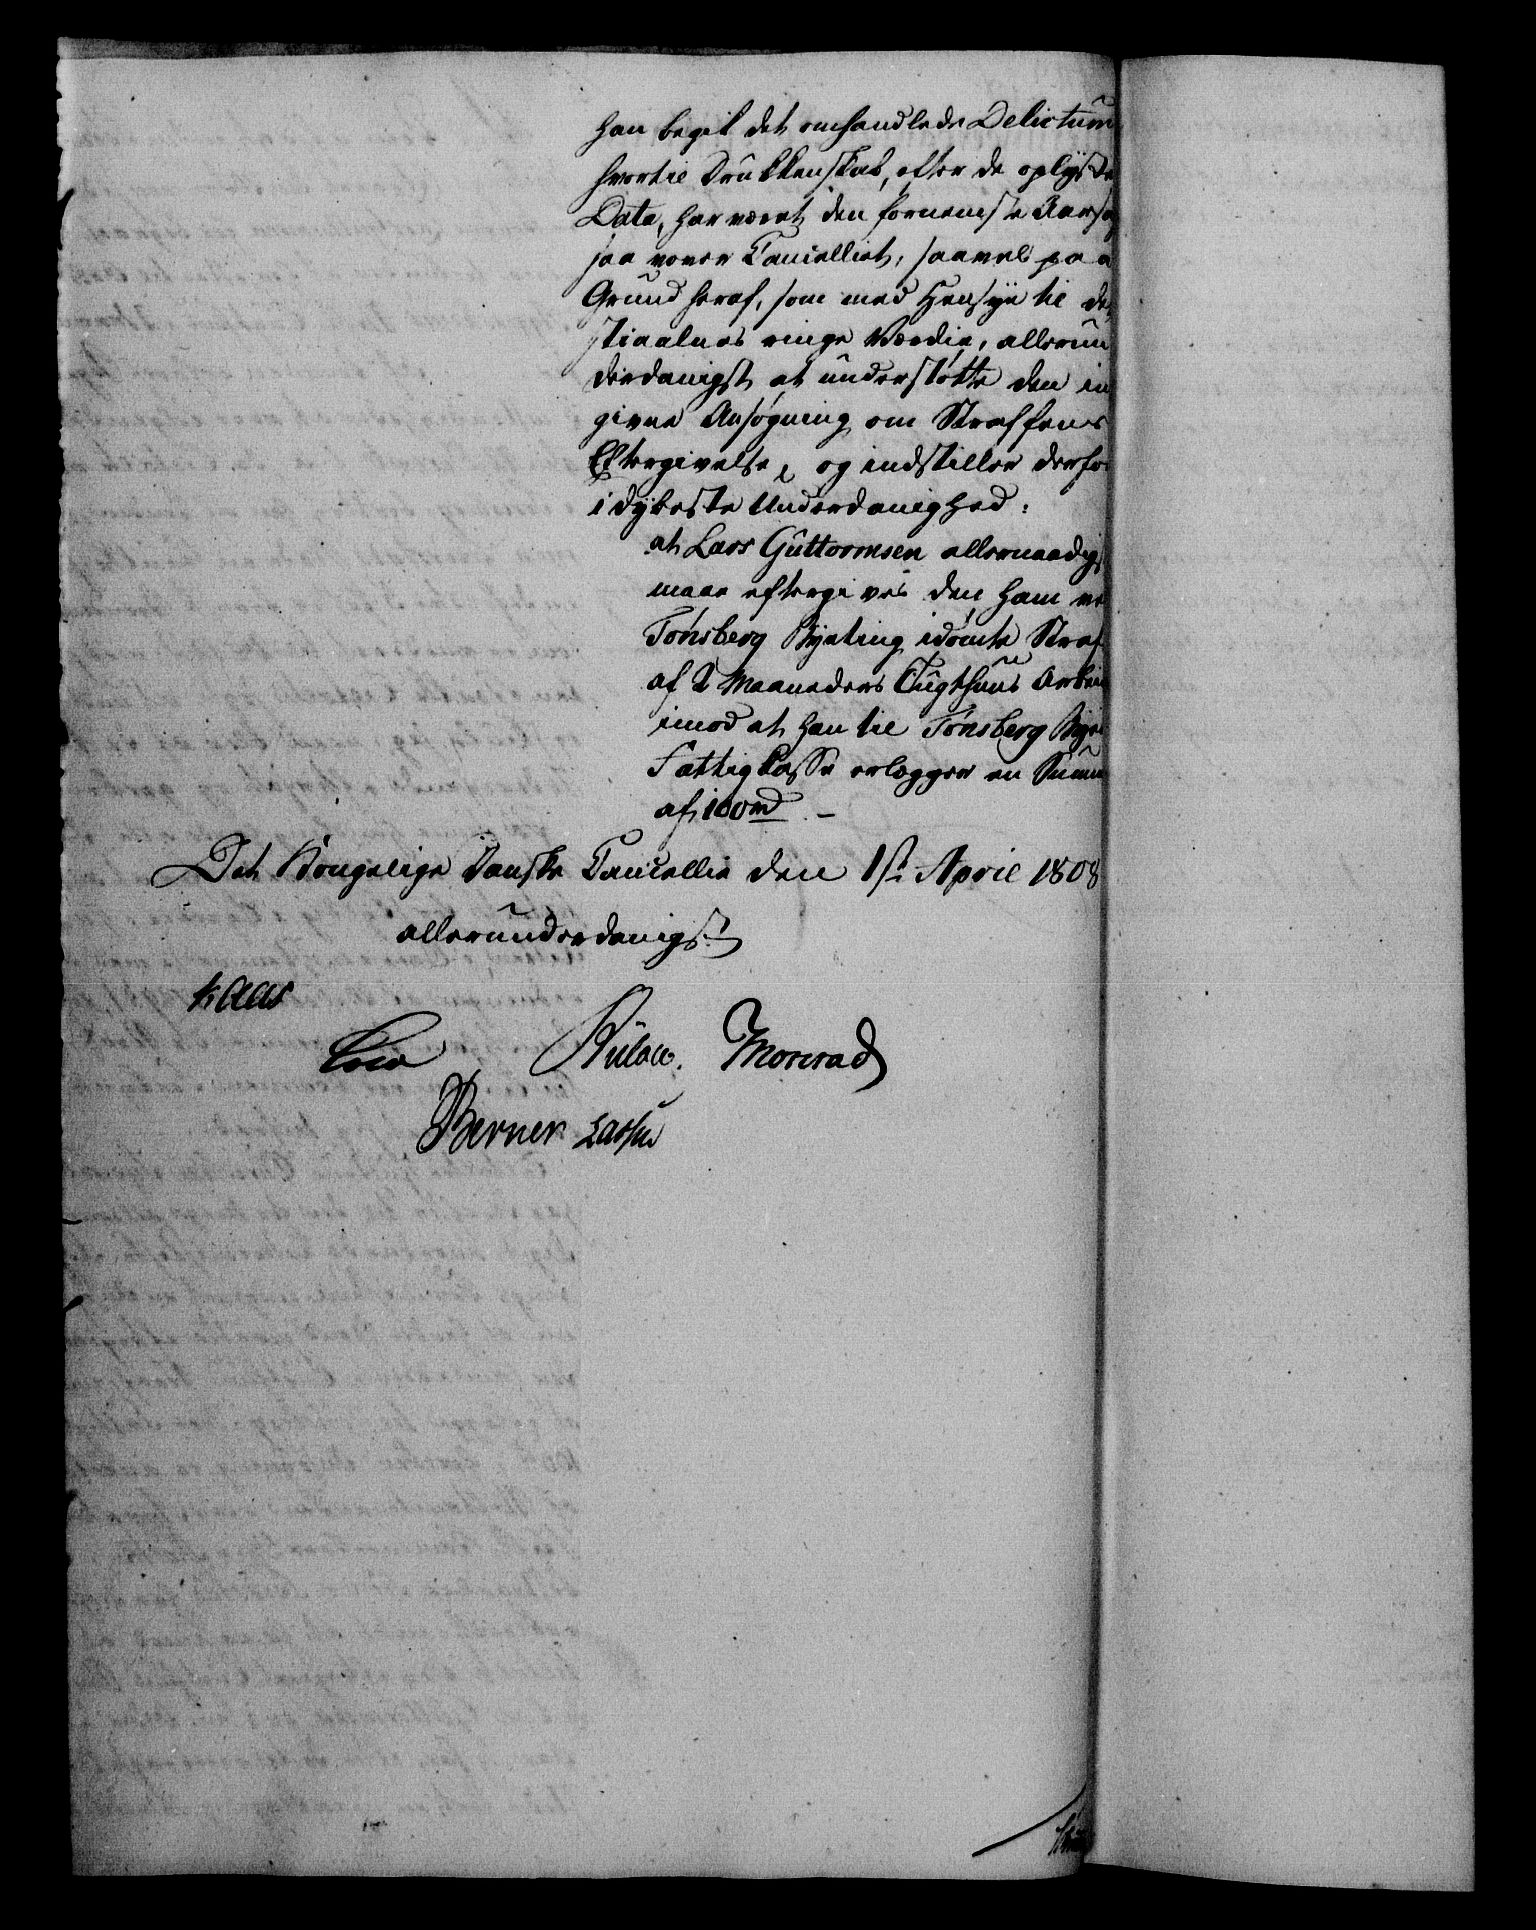 han begik det omhandlede Delictum
hvortil Drukkenskab, efter de oplyste
Data, har været den fornemste Aarsag
saa vover Cancelliet, saavel paa
Grund heraf, som med Hensyn til det
stiaalnes ringe Værdie, allerun
derdanigst at understøtte den in
givne Ansøgning om Straffens
Eftergivelse, og indstiller derfor
i dybeste Underdanighed:
at Lars Guttormsen allernaadigst
maae eftergives den ham ved
Tønsberg Byeting idømte Straf
af 2 Maaneders Tugthuus Arbeide
imod at han til Tønsberg Byes
Fattigkasse erlægger en Summa
af 100 rd. –
Det Kongelige Danske Cancellie den 1ste April 1808
allerunderdanigst
Kaas
Bülow. Monrad
Berner Lassen